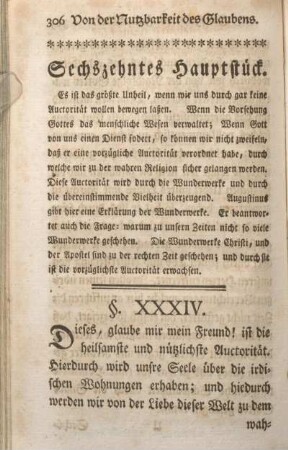 306 Von der Nutzbarkeit des Glaubens.
Sechszehntes Hauptstück.
Es ist das größte Unheil, wenn wir uns durch gar keine
Auctorität wollen bewegen laßen. Wenn die Vorsehung
Gottes das menschliche Wesen verwaltet; Wenn Gott
von uns einen Dienst fodert, so können wir nicht zweifeln,
daß er eine vorzügliche Auctorität verordnet habe, durch
welche wir zu der wahren Religion sicher gelangen werden.
Diese Auctorität wird durch die Wunderwerke und durch
die übereinstimmende Vielheit überzeugend. Augustinus
gibt hier eine Erklärung der Wunderwerke. Er beantwor-
tet auch die Frage: warum zu unsern Zeiten nicht so viele
Wunderwerke geschehen. Die Wunderwerke Christi, und
der Apostel sind zu der rechten Zeit geschehen; und durch sie
ist die vorzüglichste Auctorität erwachsen.
§. XXXIV.
Dieses, glaube mir mein Freund! ist die
heilsamste und nützlichste Auctorität.
Hierdurch wird unsre Seele über die irdi-
schen Wohnungen erhaben; und hiedurch
werden wir von der Liebe dieser Welt zu dem
wah-